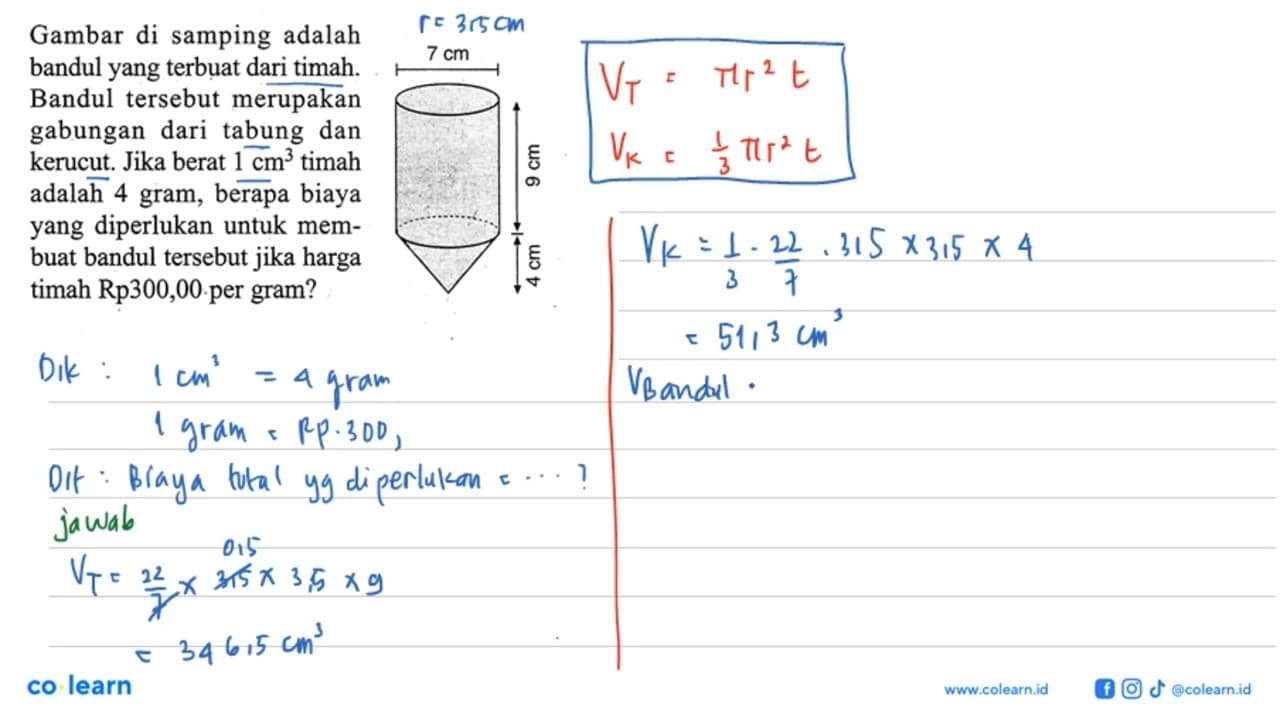 Gambar di samping adalah
bandul yang terbuat dari timah.
Bandul tersebut merupakan
gabungan dari tabung dan
kerucut. Jika berat 1 cm³ timah
adalah 4 gram, berapa biaya
yang diperlukan untuk mem-
buat bandul tersebut jika harga
timah Rp300,00 per gram?
r = 3,5 cm
7 cm
9 cm
4 cm
V_T = πr² t
V_K = 1/3 πr² t
Dik : 1 cm³ = 4 gram
1 gram = Rp.300,
Dit : Biaya total yg diperlukan = ... ?
jawab
0,5
V_T = 22/7 x 3,5 x 3,5 x 9
= 346,5 cm³
V_K = 1/3 . 22/7 . 3,5 x 3,5 x 4
= 51,3 cm³
V Bandul .
co learn
www.colearn.id
@colearn.id